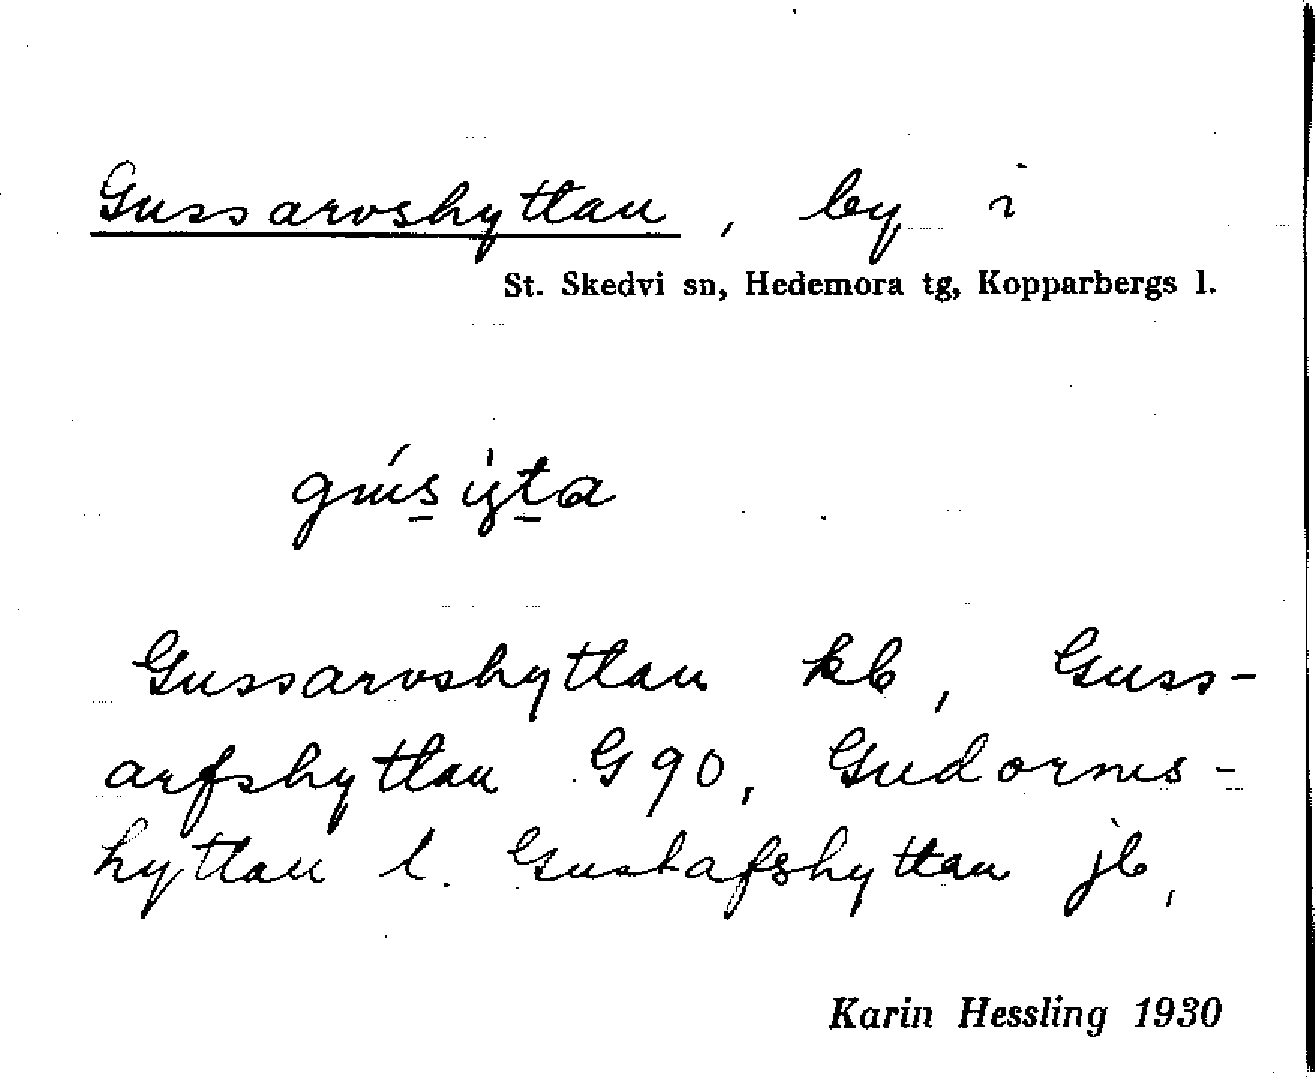 Gussarvshyttan, by i
St. Skedvi sn, Hedemora tg, Kopparbergs l.
Gussarvshyttan kb, Guss-
arfshyttan G 90, Gudorms-
hyttan l. Gustafshyttan jb,
Karin Hessling 1930